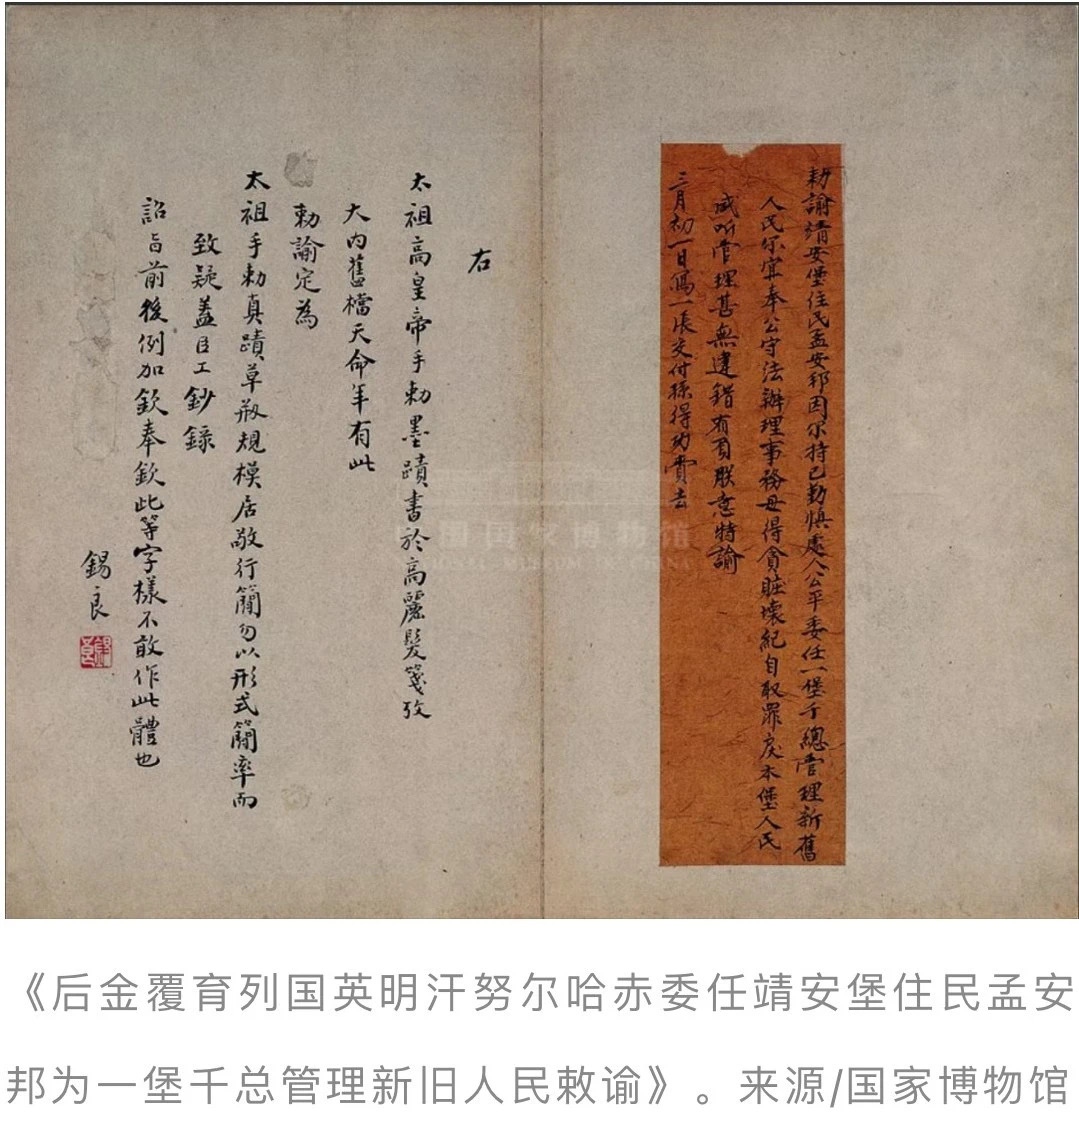 勅諭靖安堡住民孟安邦因尔持己勤慎處人公平委任一堡千總管理新舊
人民尔宜奉公守法辦理事務毋得貪賍壞紀自取罪戾本堡人民
咸听管理甚無違錯有負朕意特諭
三月初一日寫一張交付孫得功賫去
右
太祖高皇帝手勅墨蹟書於高麗髮箋攷
大内舊檔天命年有此
勅諭定為
太祖手勅真蹟草刱規模居敬行簡勿以形式簡率而
致疑蓋臣工鈔録
詔旨前後例加欽奉欽此等字樣不敢作此體也
錫良
中国国家博物馆
NATIONAL MUSEUM OF CHINA
《后金覆育列国英明汗努尔哈赤委任靖安堡住民孟安
邦为一堡千总管理新旧人民敕谕》。来源/国家博物馆